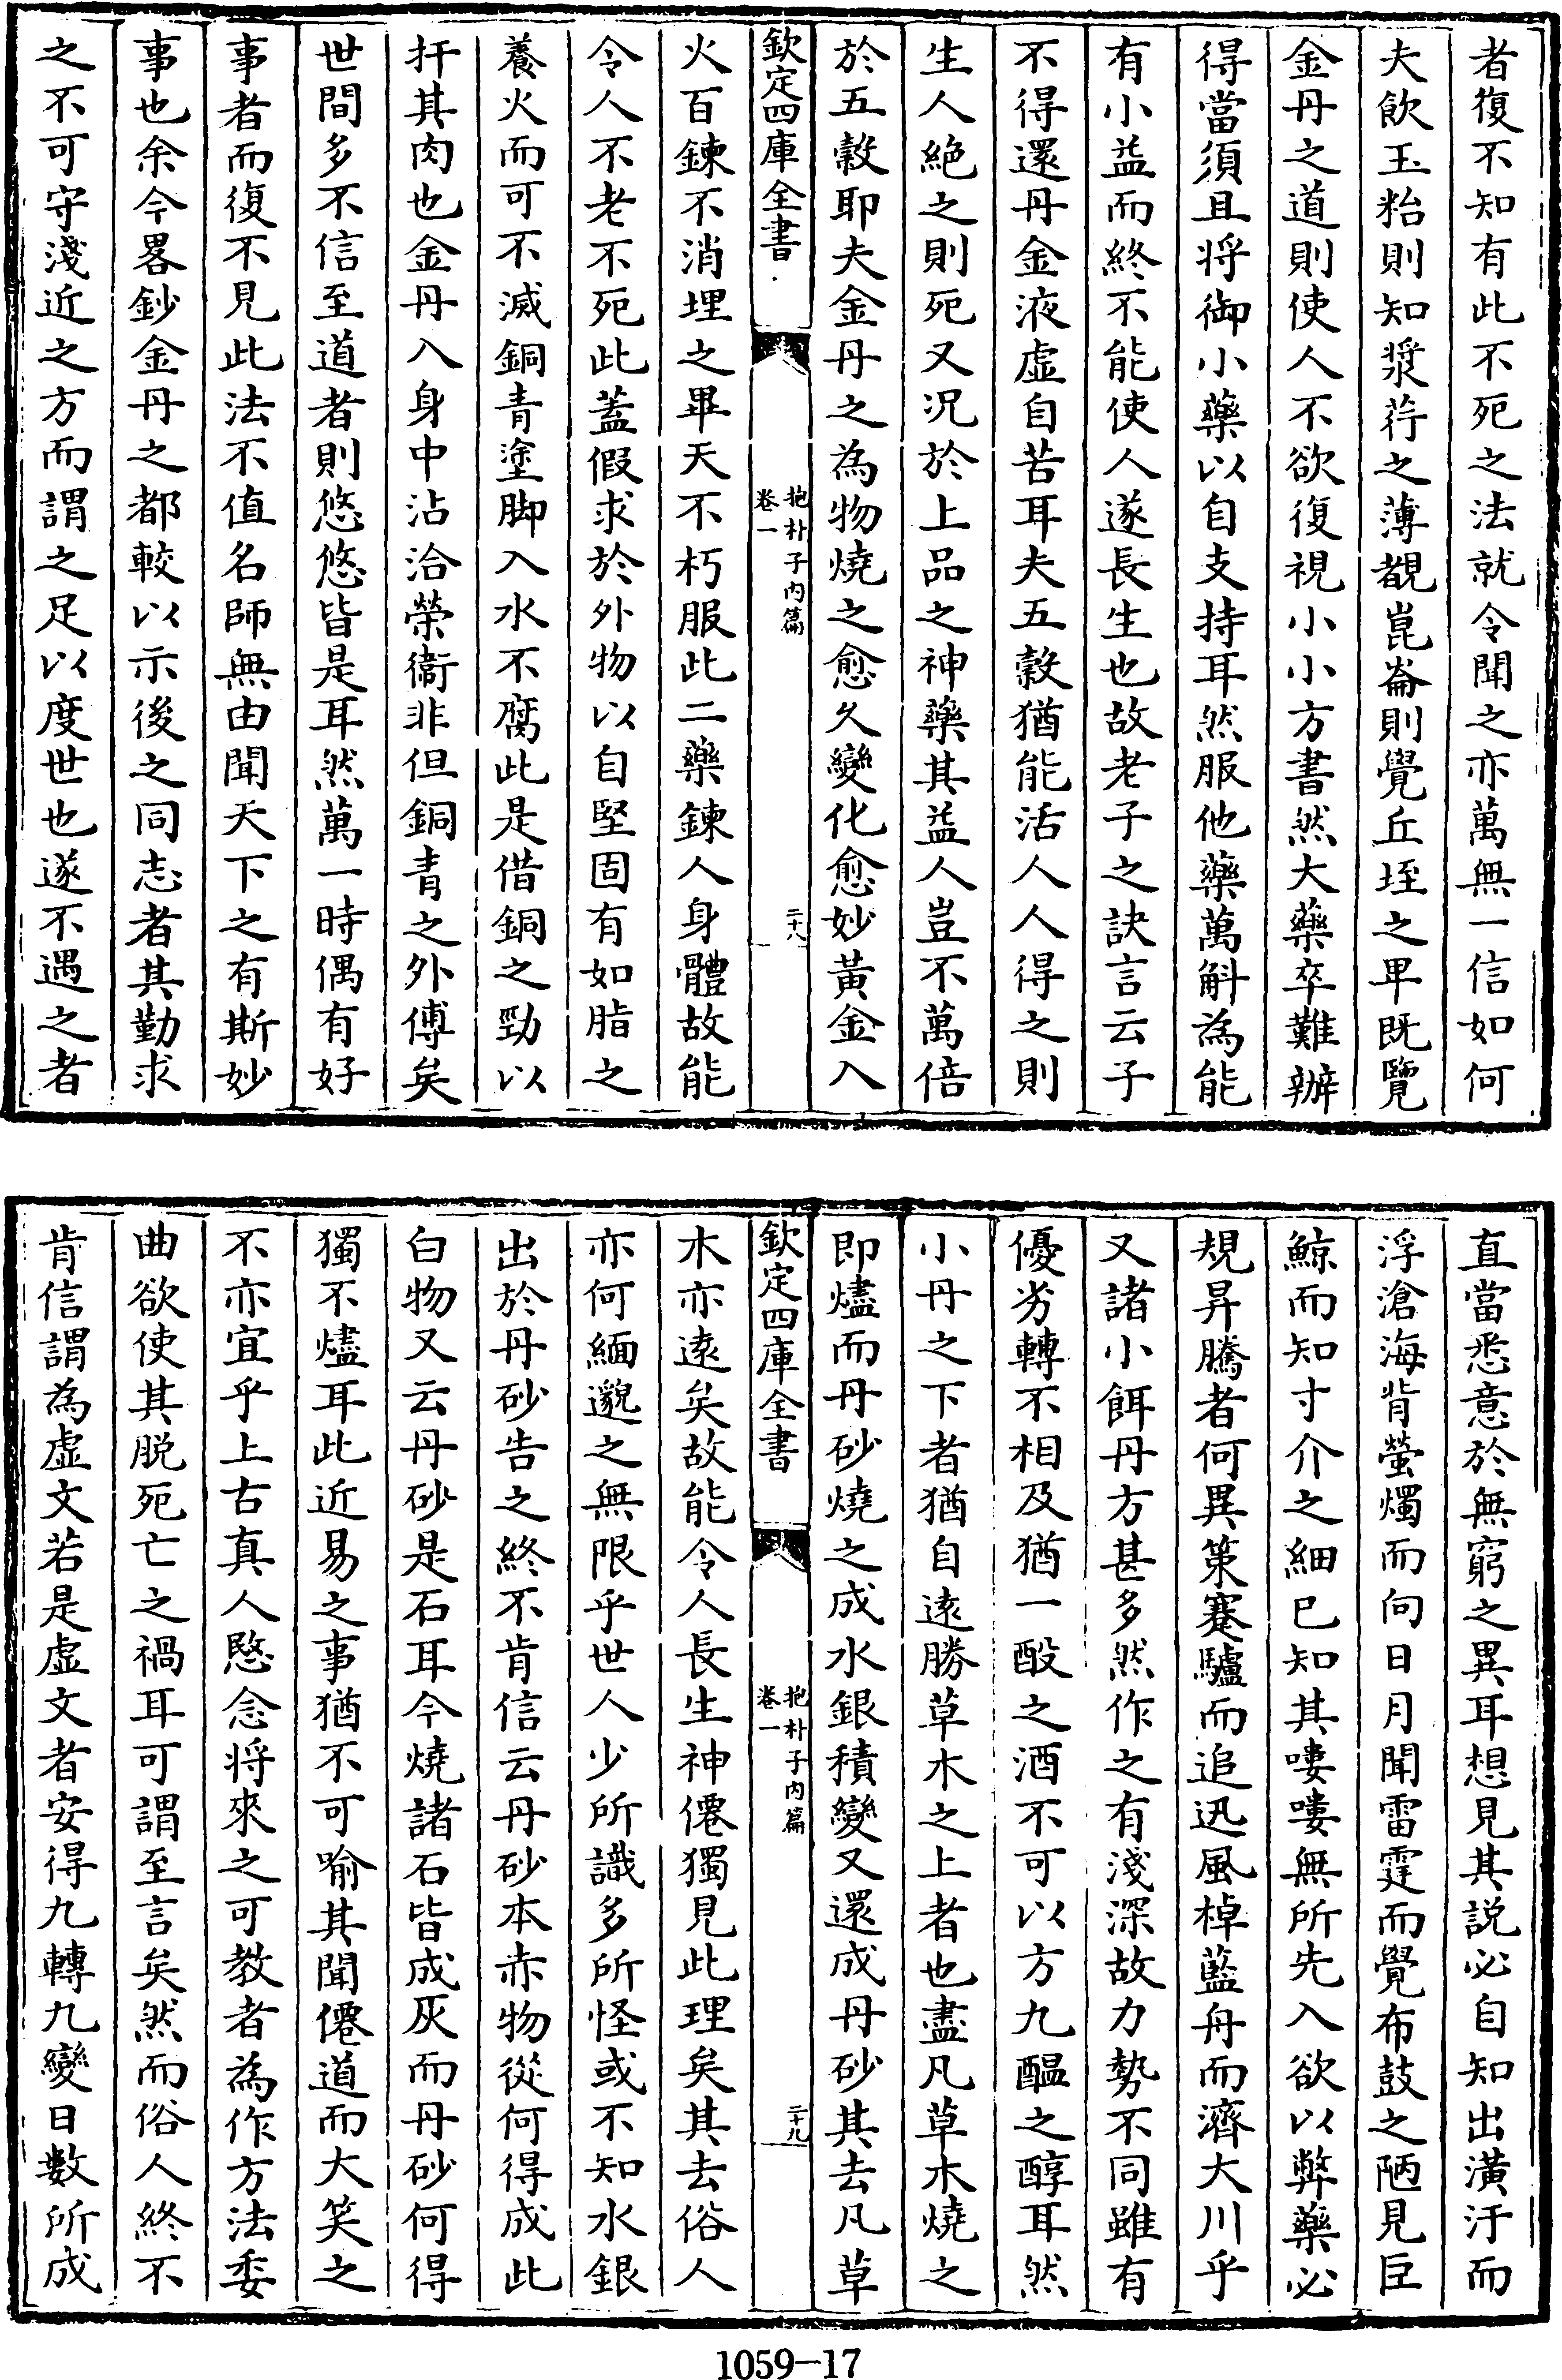 者復不知有此不死之法就令聞之亦萬無一信如何
夫飲玉粭則知漿荇之薄覩崑崙則覺丘垤之卑既覽
金丹之道則使人不欲復視小小方書然大藥卒難辦
得當須且将御小藥以自支持耳然服他藥萬斛為能
有小益而終不能使人遂長生也故老子之訣言云子
不得還丹金液虛自苦耳夫五穀猶能活人人得之則
生人絶之則死又况於上品之神藥其益人豈不萬倍
於五穀耶夫金丹之為物燒之愈久變化愈妙黄金入
欽定四庫全書
抱朴子内篇
卷一
二十八
火百鍊不消埋之畢天不朽服此二藥鍊人身體故能
令人不老不死此蓋假求於外物以自堅固有如脂之
養火而可不滅銅青塗脚入水不腐此是借銅之勁以
扞其肉也金丹入身中沾洽榮衞非但銅青之外傅矣
世間多不信至道者則悠悠皆是耳然萬一時偶有好
事者而復不見此法不值名師無由聞天下之有斯妙
事也余今畧鈔金丹之都較以示後之同志者其勤求
之不可守淺近之方而謂之足以度世也遂不遇之者
直當悉意於無窮之異耳想見其説必自知出潢汙而
浮滄海背螢燭而向日月聞雷霆而覺布鼓之陋見巨
鯨而知寸介之細巳知其嘍嘍無所先入欲以弊藥必
規昇騰者何異策蹇驢而追迅風棹藍舟而濟大川乎
又諸小餌丹方甚多然作之有淺深故力勢不同雖有
優劣轉不相及猶一酘之酒不可以方九醖之醇耳然
小丹之下者猶自遠勝草木之上者也盡凡草木燒之
即燼而丹砂燒之成水銀積變又還成丹砂其去凡草
欽定四庫全書
抱朴子内篇
卷一
二十九
木亦遠矣故能令人長生神僊獨見此理矣其去俗人
亦何緬邈之無限乎世人少所識多所怪或不知水銀
出於丹砂告之終不肯信云丹砂本赤物從何得成此
白物又云丹砂是石耳今燒諸石皆成灰而丹砂何得
獨不燼耳此近易之事猶不可喻其聞僊道而大笑之
不亦宜乎上古真人愍念将來之可教者為作方法委
曲欲使其脱死亡之禍耳可謂至言矣然而俗人終不
肯信謂為虛文若是虛文者安得九轉九變日數所成
1059-17